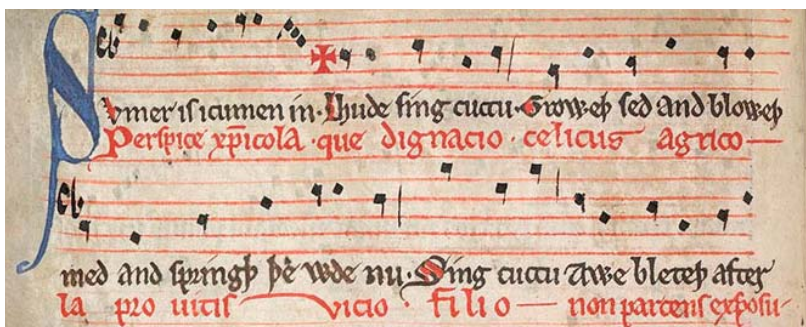 Svmer is icumen in. Lhude sing cuccu. Groweþ sed and bloweþ
Perspice xp̄icola · que dignacio · celicus agrico
med and springþ þe wde nu. Sing cuccu Awe bleteþ after
la pro uitis vicio · filio non parcens exposu